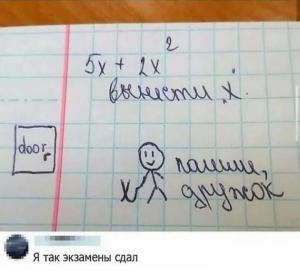 5x + 2x²
вынести x.
door
x
пошли,
дружок
Я так экзамены сдал